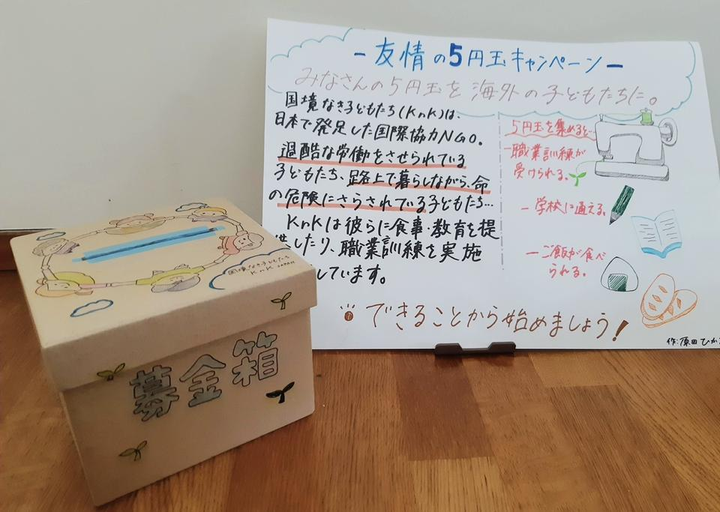 -友情の5円玉キャンペーン-
みなさんの5円玉を海外の子どもたちに。
国境なき子どもたち(KnK)は、
日本で発足した国際協力NGO。
過酷な労働をさせられている
子どもたち、路上で暮らしながら、命
の危険にさらされている子どもたち…
KnKは彼らに食事・教育を提
したり、職業訓練を実施
しています。
5円玉を集めると、
-職業訓練が
受けられる。
-学校に通える。
-ご飯が食べ
られる。
できることから始めましょう!
作:原田ひか
国境なき子どもたち
KnK
募金箱